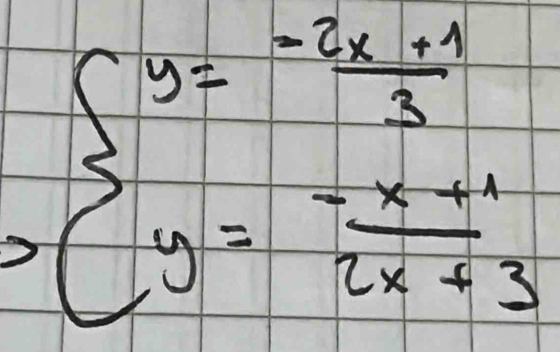 y = -2x + 1 / 3
y = -x + 1 / 2x + 3